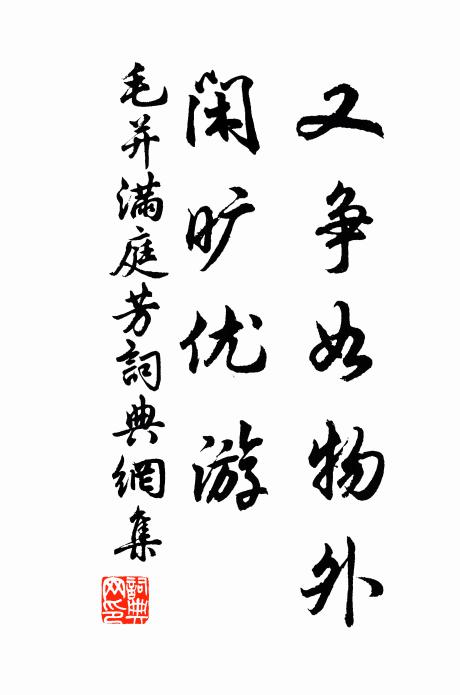 又争如物外
闲旷优游
毛并滿庭芳詞典網集
詞典网印